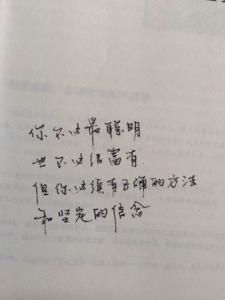 你不必最聪明
也不必很富有
但你必须有正确的方法
和坚定的信念